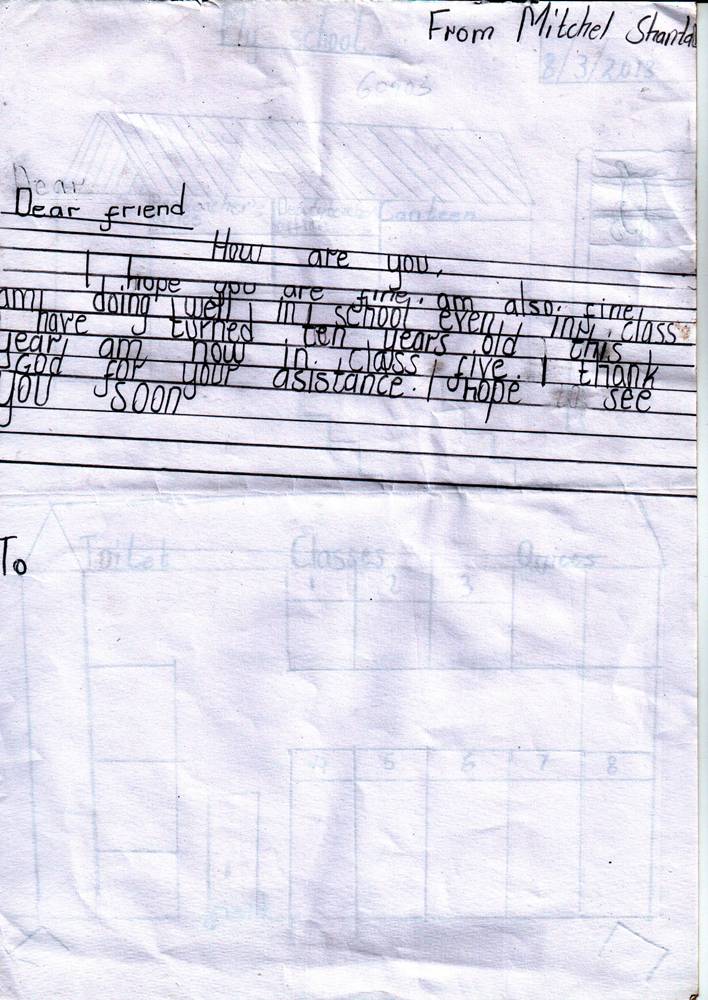 From Mitchel
My school
8/3/2013
Dear
Dear friend
How are you.
I hope you are fine. am also. fine
am doing well in school even in my class
I have turned ten years old this
year am now in class five. I thank
God for your asistance. I hope to see
you soon
Canteen
To
Toilet Classes Offices
1 2 3
4 5 6 7 8